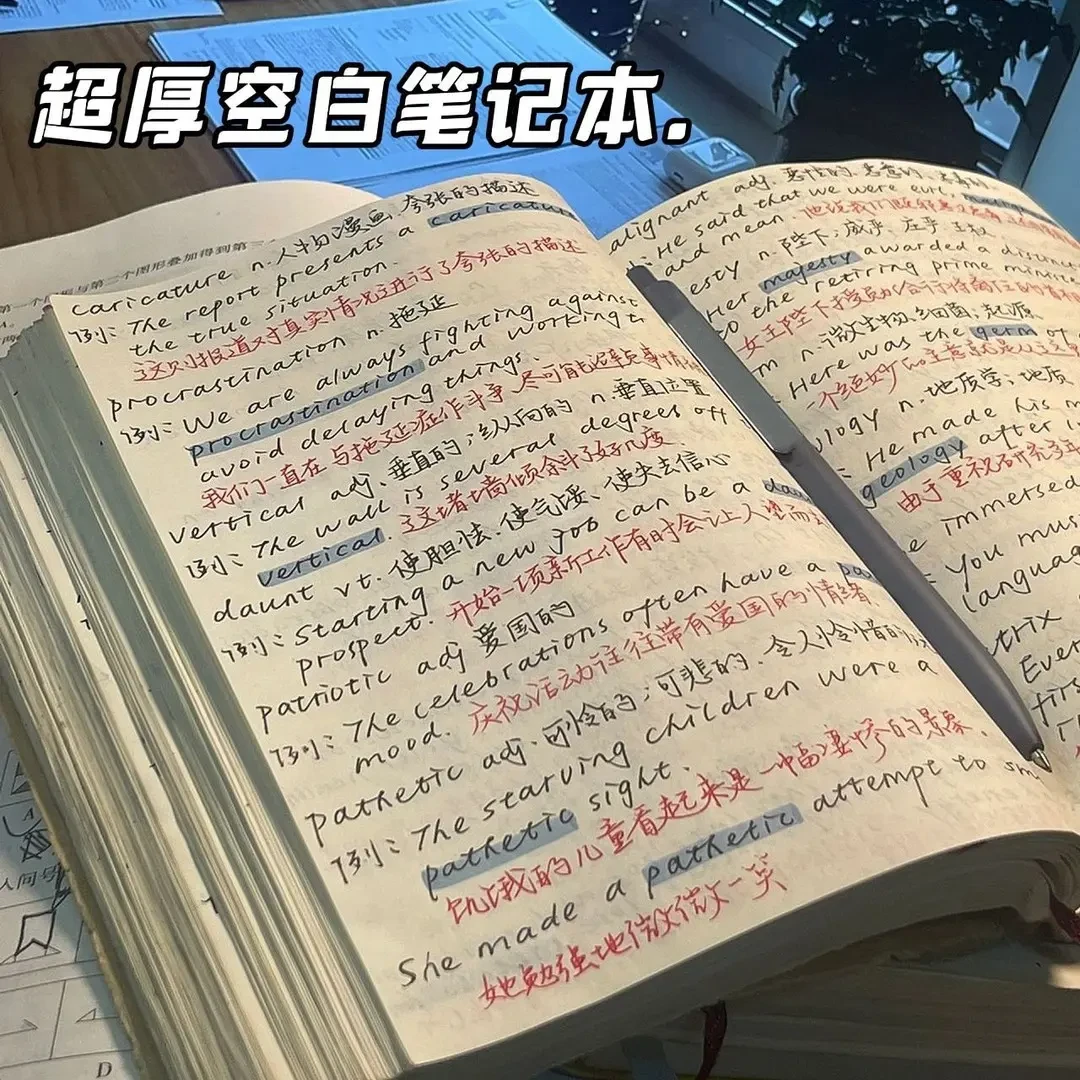 超厚空白笔记本.
第一个图形与第二个图形叠加得到第三
caricature n.人物漫画、夸张的描述
例: The report presents a caricature
the true situation.
这则报道对真实情况进行了夸张的描述
procrastination n. 拖延
例: We are always fighting against
procrastination and working to
avoid delaying things.
我们一直在与拖延症作斗争 尽可能
vertical adj、垂直的;纵向的 n.垂直位置
例: The wall is several degrees off
vertical. 这堵墙倾斜了好几度.
daunt vt. 使胆怯、使气馁、使失去信心
例: Starting a new job can be a
prospect. 开始一项新工作有时会让人望而
patriotic adj 爱国的
例: The celebrations often have a
mood. 庆祝活动往往带有爱国的情绪.
pathetic adj.可怜的;可悲的、令人怜惜的
例: The starving children were a
pathetic sight.
饥饿的儿童看起来是一幅凄惨的景象.
She made a pathetic attempt to
她勉强地微微一笑
alignant adj. 恶性的、恶意的、
: He said that we were evil,
and mean.
esty n.陛下;威严、庄严、王权
Her majesty awarded a distinct
to the retiring prime minist
女王陛下
m n.微生物、细菌;起源
Here was the germ of
一个绝妙的主意就是
ology n.地质学;地质
He made his m
geology after
由于重视研究
e immersed
You mus
languag
trix
Ever
firs
D